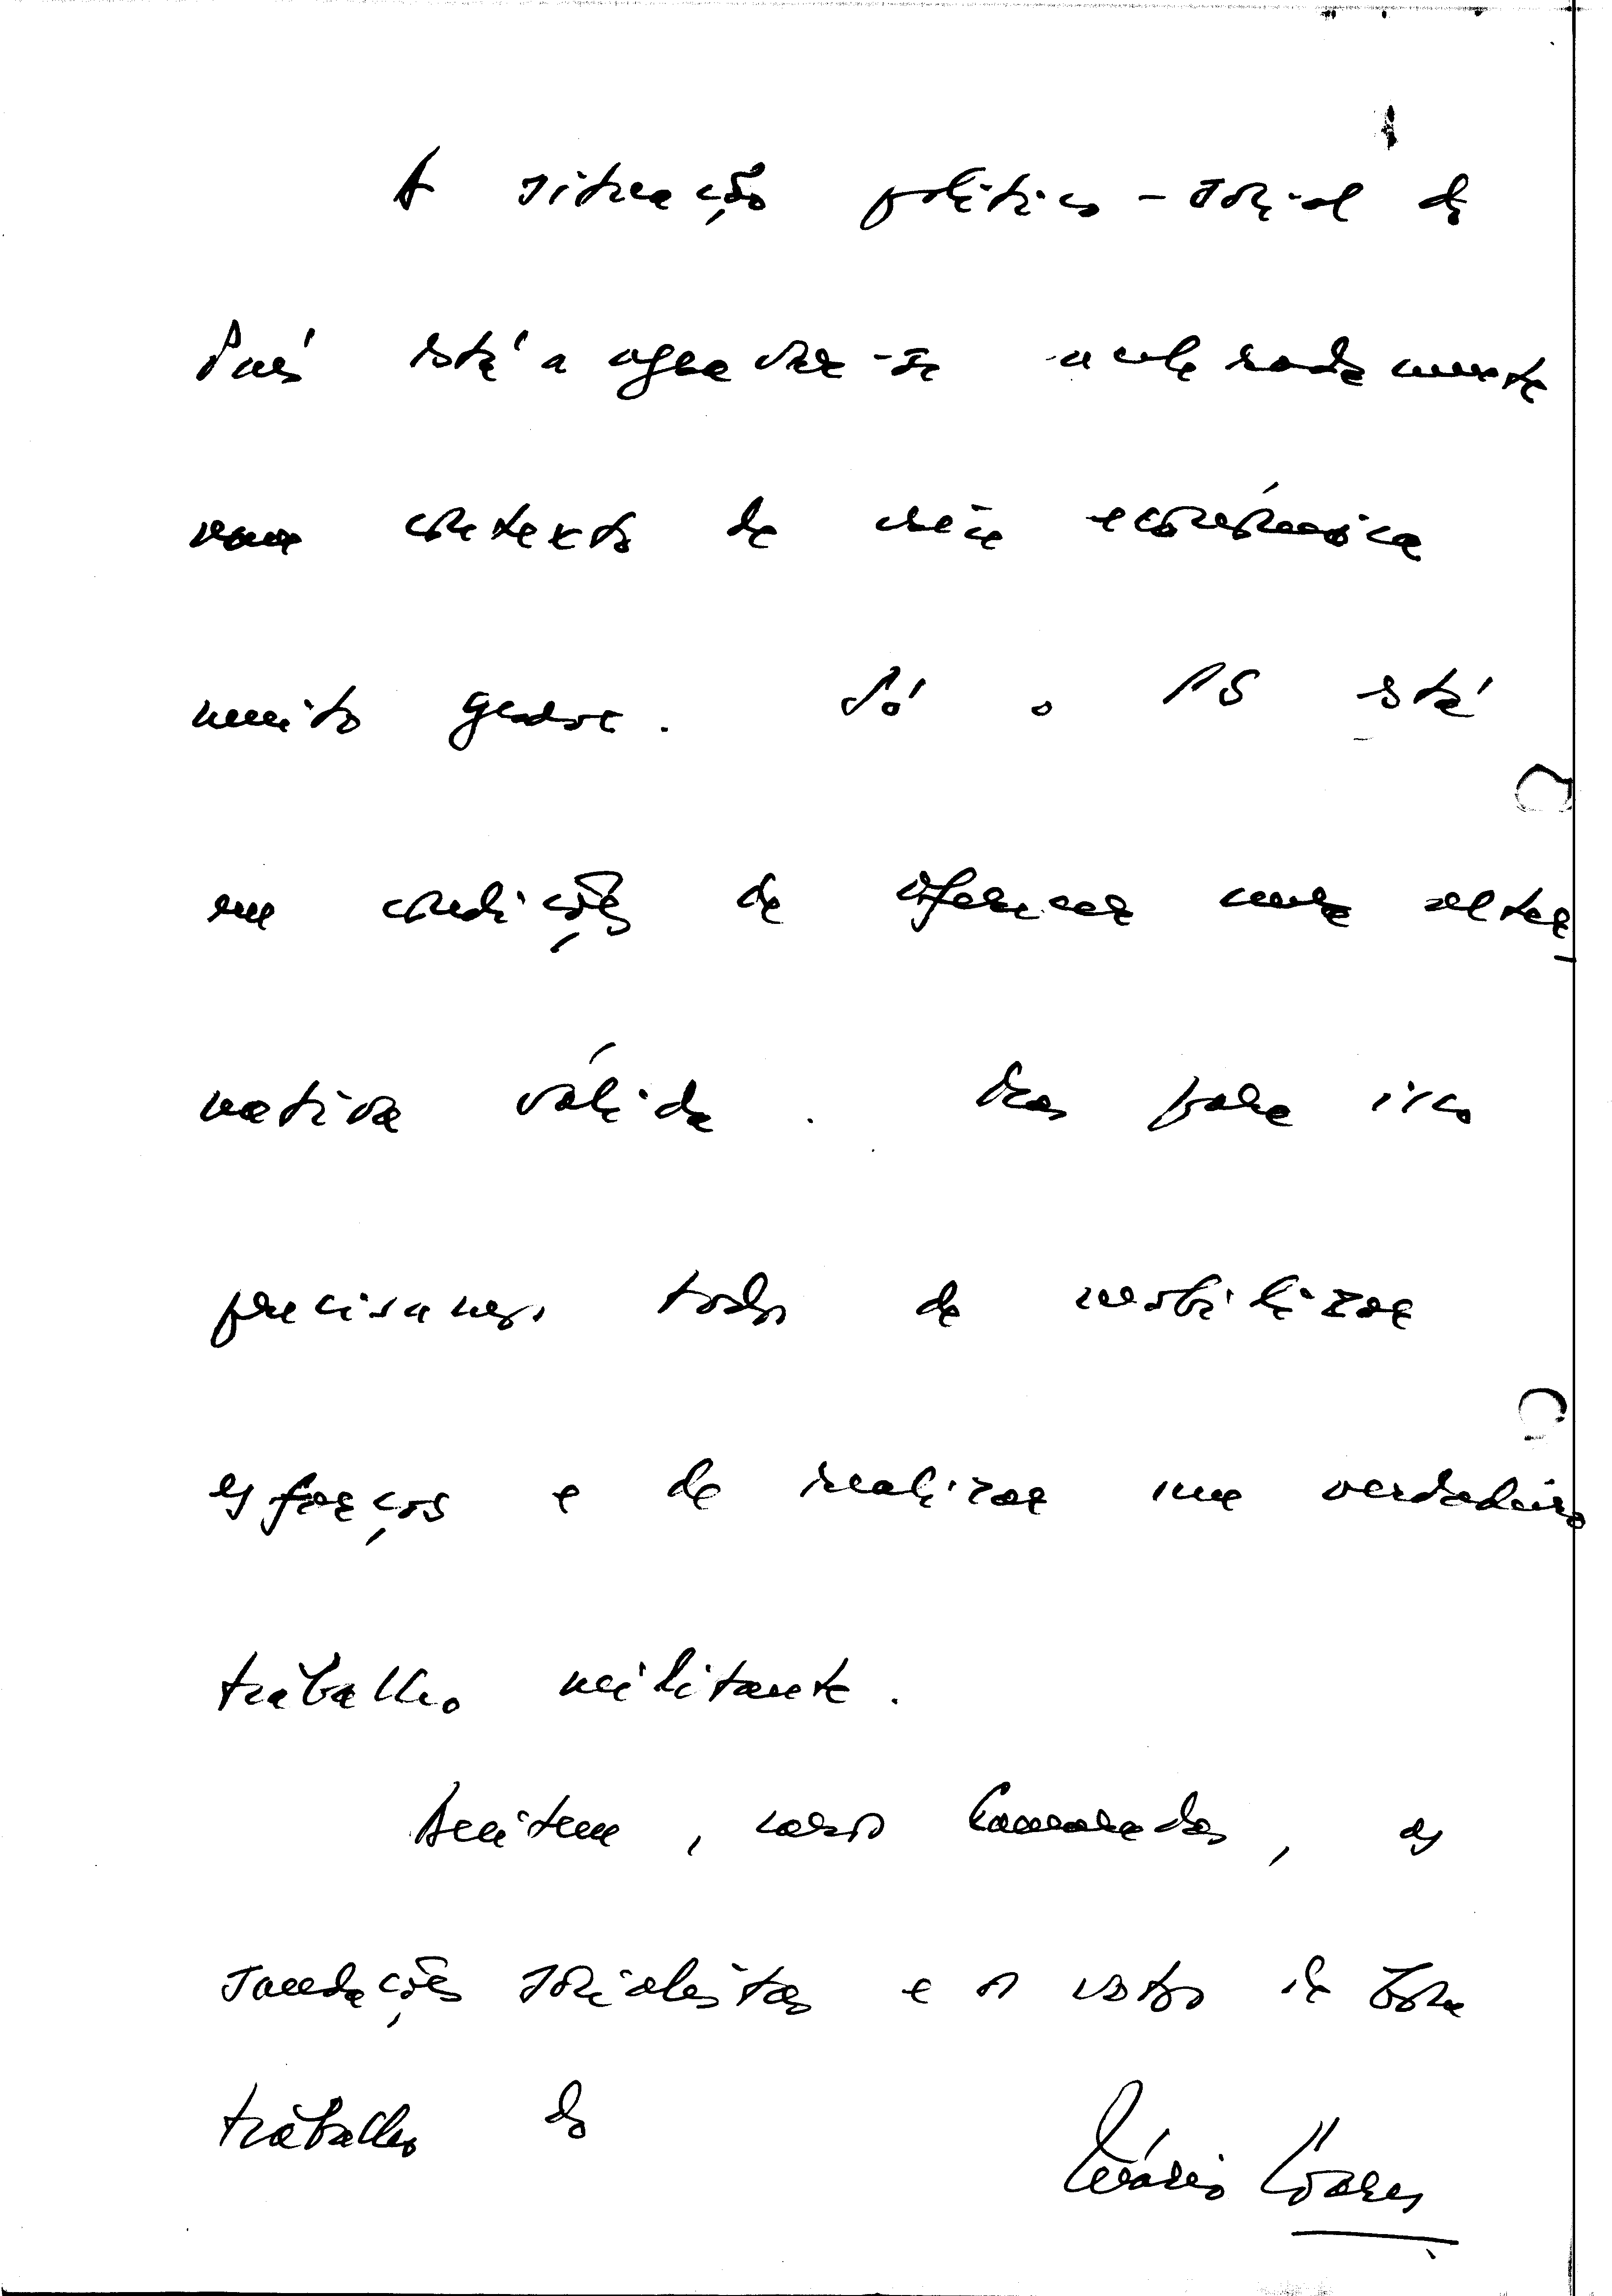 A situação político-social do
País está a agravar-se aceleradamente
num contexto de crise económica
muito grave. Só o PS está
em condições de oferecer uma alter
nativa válida. Mas para isso
precisamos todos de mobilizar
esforços e de realizar um verdadeiro
trabalho militante.
Aceitem, caros Camaradas, as
saudações socialistas e os votos de bom
trabalho do
Mário Soares